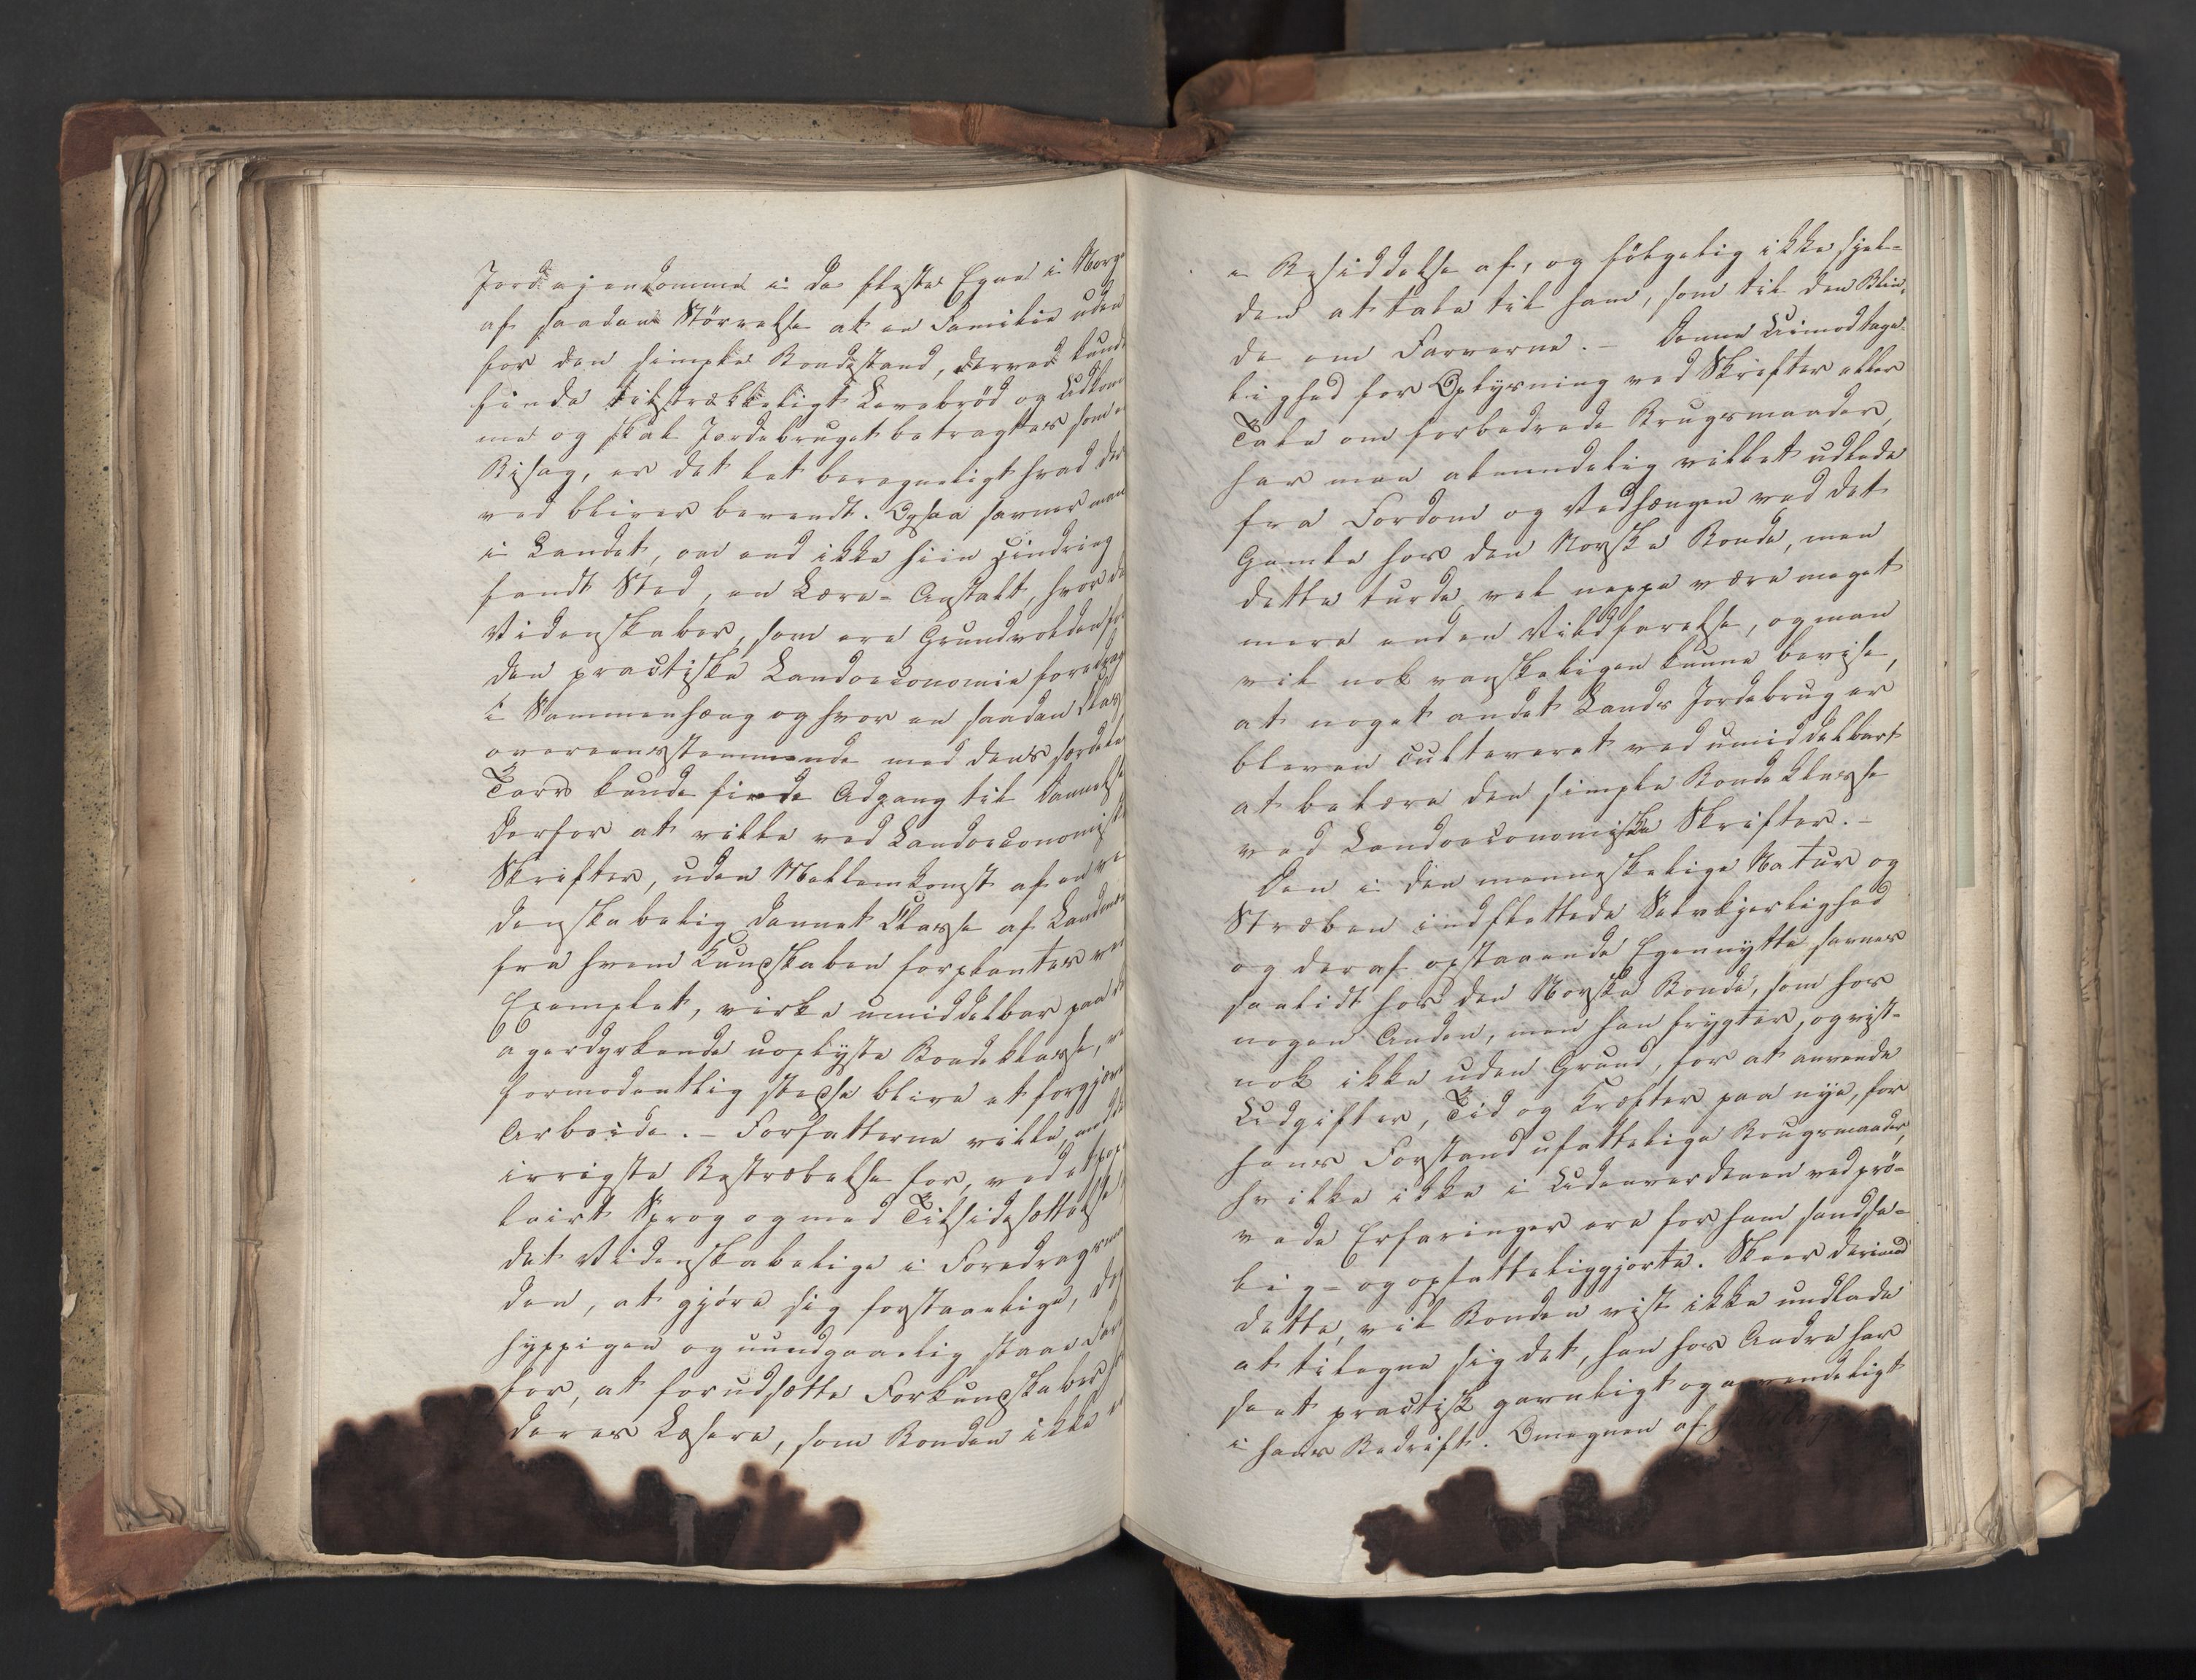 Jordejendomme i de fleste Egne i Norge
af saadan Størrelse at en Familie uden
for den simple Bondestand, derved kunde
finde tilstrækkeligt Levebrød og Udkom
me og skal Jordebruget betragtes som
Bisag, er det let beregneligt hvad der
ved bliver bevendt. Ogsaa savner man
i Landet, om end ikke hiin Hindring
fandt Sted, en Lære-Anstalt, hvor de
Videnskaber, som ere Grundvolden for
den practiske Landoeconomie foredrages
i Sammenhæng og hvor en saadan Clas
overeensstemmende med dens særdeles
Tarv kunde finde Adgang til Dannelse
derfor at ville ved Landoeconomiske
Skrifter, uden Mellemkomst af en vi
denskabelig dannet Classe af Landmænd
fra hvem Kundskaben forplantes ved
Exemplet, virke umiddelbar paa den
agerdyrkende uoplyste Bondeklasse, vil
formodentlig stedse blive et forgjæves
Arbeide. – Forfatterne ville, med den
ivrigste Bestræbelse for, ved et popu
lairt Sprog og med Tilsidesættelse
det Videnskabelige i Foredragsmaa
den, at gjøre sig forstaaelige, dog
hyppigen og uundgaaelig staae Fare
for, at forudsætte Forkundskaber hos
deres Læsere, som Bonden ikke er
i Besiddelse af, og følgelig ikke sjel-
den at tale til ham, som til den Blin-
de om Farverne. – Denne Uimodtage-
lighed for Oplysning ved Skrifter eller
Tale om forbedrede Brugsmaader,
har man almindelig villet udlede
fra Fordom og Vedhængen ved det
Gamle hos den Norske Bonde, men
dette turde vel neppe være meget
mere end en Vildfarelse, og man
vil nok vanskeligen kunne bevise,
at noget andet Lands Jordebrug er
bleven cultiveret ved umiddelbart
at belære den simple Bondeklasse
ved Landoeconomiske Skrifter. –
Den i den menneskelige Natur og
Stræben indflettede Selvkjerlighed
og deraf opstaaende Egennytte savnes
saalidt hos den Norske Bonde, som hos
nogen Anden, men han frygter, og vist-
nok ikke uden Grund, for at anvende
Udgifter, Tid og Kræfter paa nye, for
hans Forstand ufattelige Brugsmaader,
hvilke ikke i Udenverdenen ved prø-
vede Erfaringer ere for ham sandse-
lig- og opfatteliggjorte. Skeer derimod
dette, vil Bonden vist ikke undlade
at tilegne sig det, han hos Andre har
seet practisk gavnligt og anvendeligt
i hans Bedrift. Omegnen af